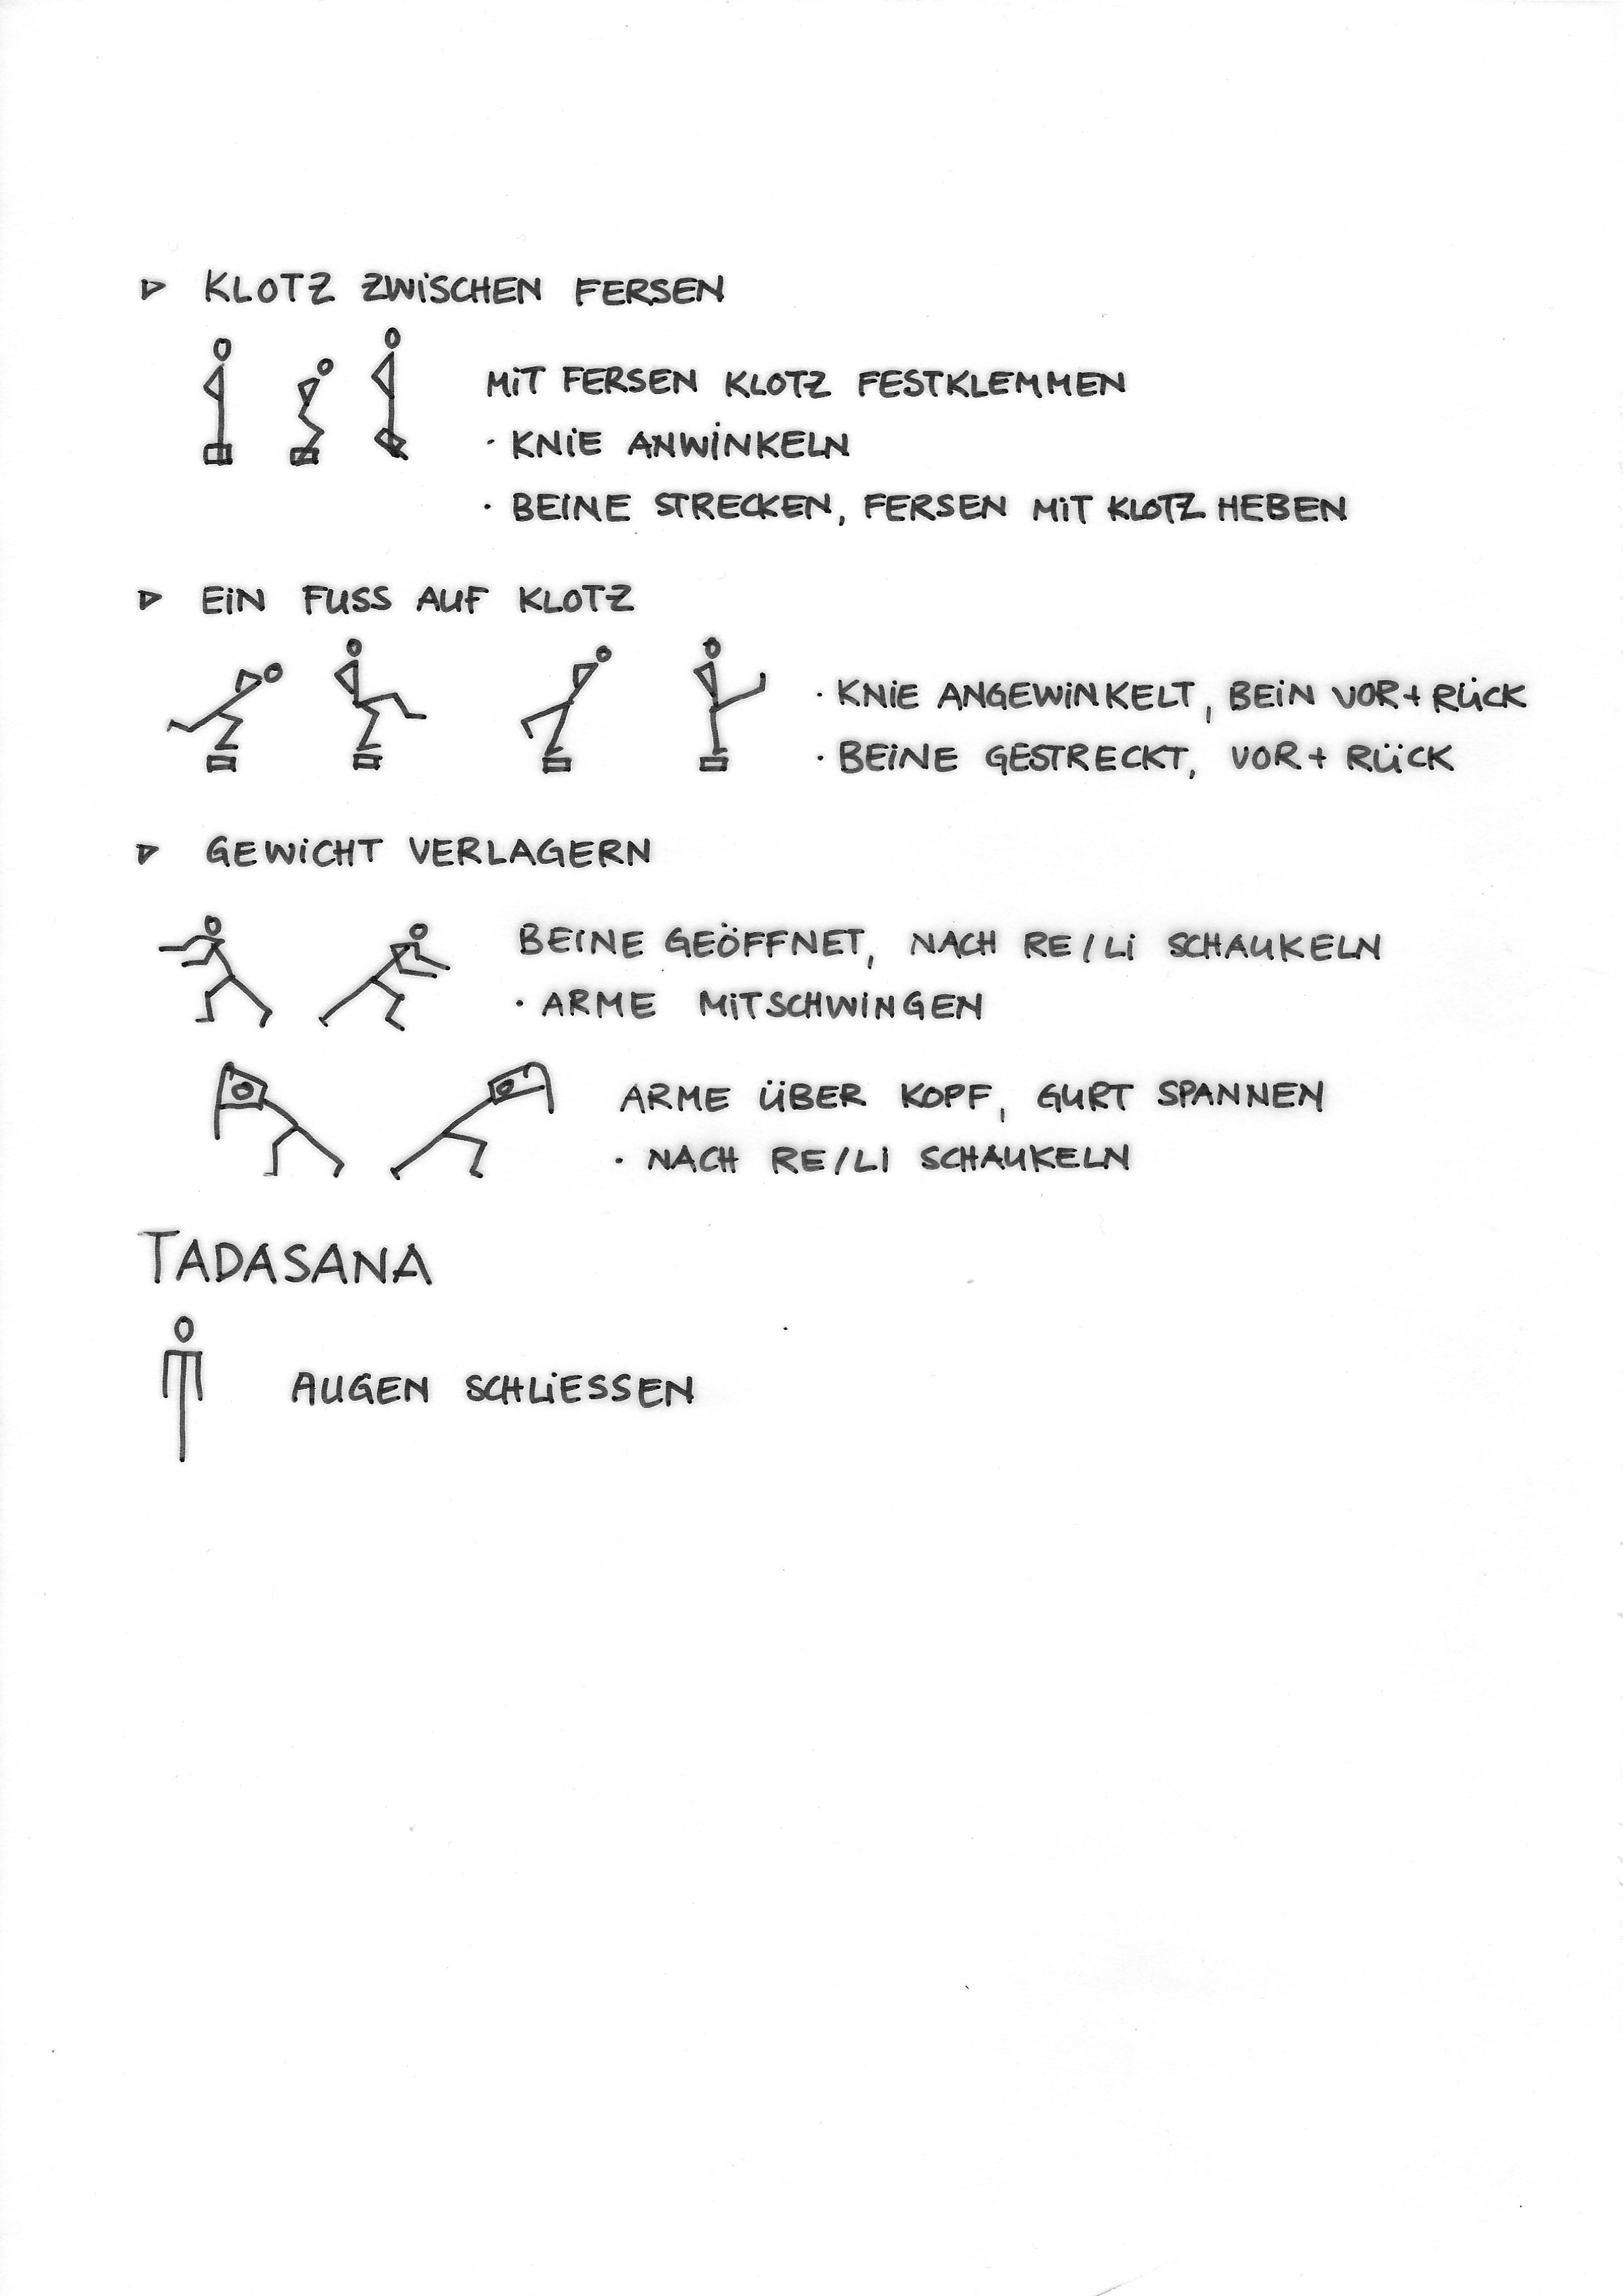 ▷ KLOTZ ZWISCHEN FERSEN
MIT FERSEN KLOTZ FESTKLEMMEN
· KNIE ANWINKELN
· BEINE STRECKEN, FERSEN MIT KLOTZ HEBEN
▷ EIN FUSS AUF KLOTZ
· KNIE ANGEWINKELT, BEIN VOR + RÜCK
· BEINE GESTRECKT, VOR + RÜCK
▷ GEWICHT VERLAGERN
BEINE GEÖFFNET, NACH RE/LI SCHAUKELN
· ARME MITSCHWINGEN
ARME ÜBER KOPF, GURT SPANNEN
· NACH RE/LI SCHAUKELN
TADASANA
AUGEN SCHLIESSEN